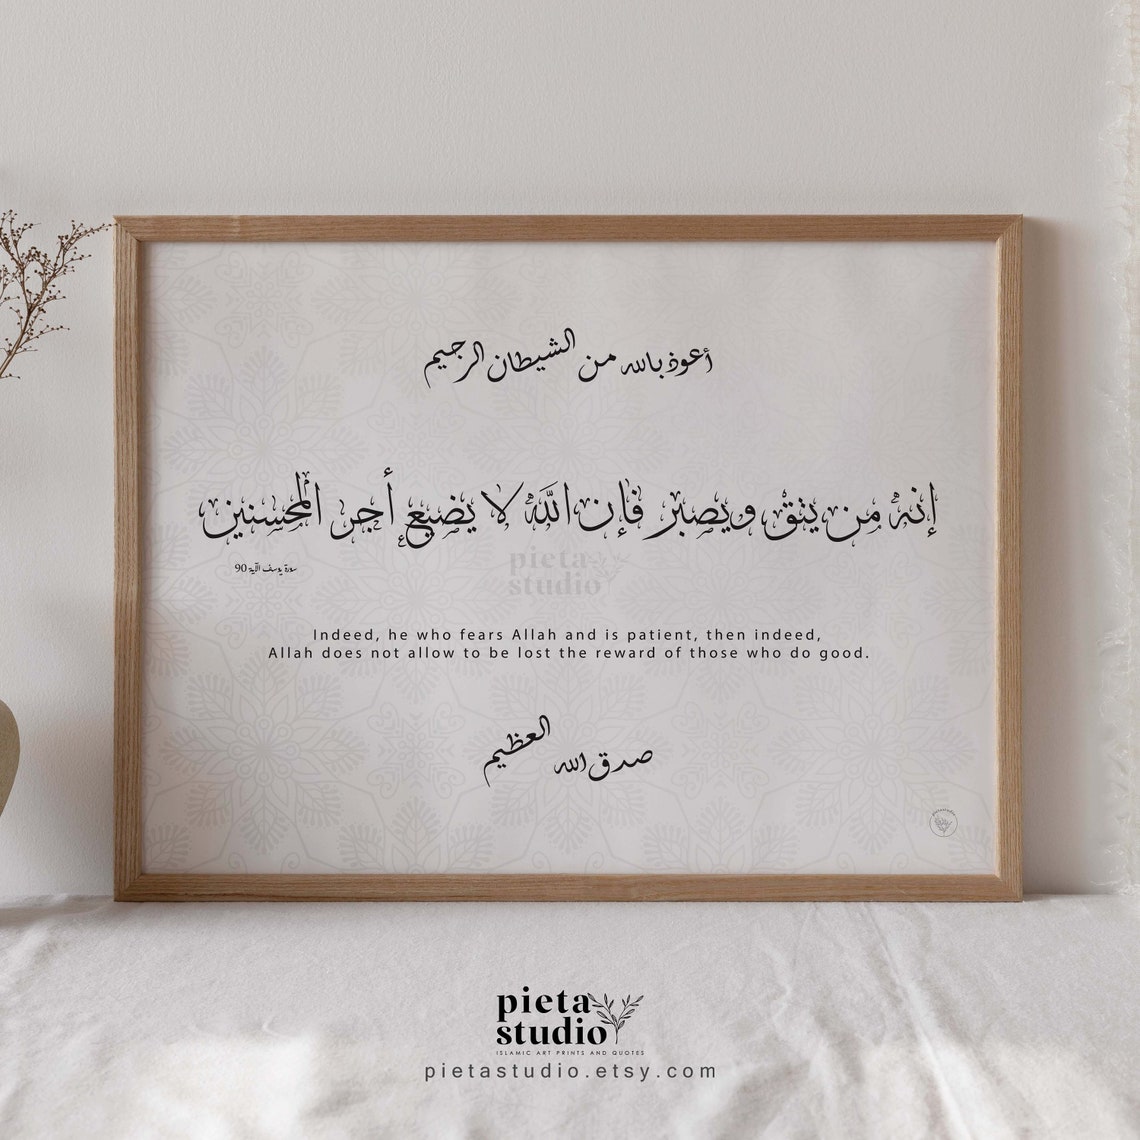 أعوذ بالله من الشيطان الرجيم
إنه من يتق ويصبر فإن الله لا يضيع أجر المحسنين
سورة يوسف الآية 90
pieta
studio
Indeed, he who fears Allah and is patient, then indeed,
Allah does not allow to be lost the reward of those who do good.
صدق الله العظيم
pietastudio
pieta
studio
ISLAMIC ART PRINTS AND QUOTES
pietastudio.etsy.com